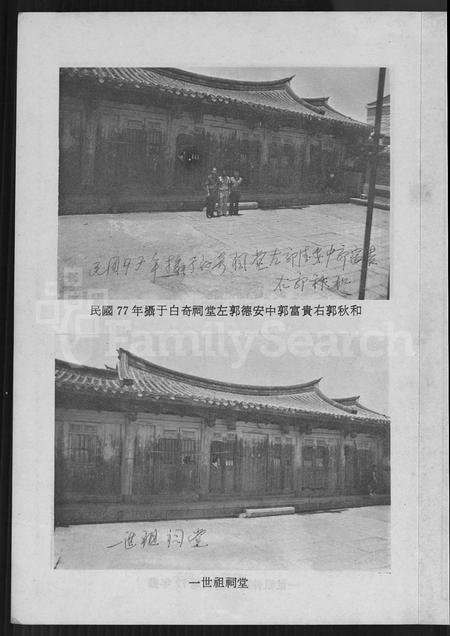 民國77年攝于白奇祠堂左郭德安中郭富貴
右郭秋和
民國77年攝于白奇祠堂左郭德安中郭富貴右郭秋和
FamilySearch
一世祖祠堂
一世祖祠堂